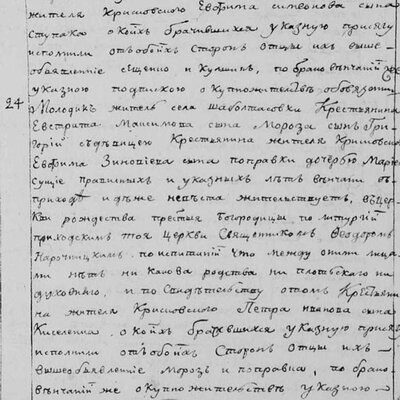 жителя Крисповского Евфима симеонова сына
Ступака о коихъ брачившихся указную присягу
исполнили отъ обоихъ сторонъ отцы ихъ выше
объявленніе и по бракo вѣнчаніи же
указною подпискою о купножителствѣ обовязани
24 Молодикъ житель села Шаболтасовки Крестьянина
Евстрата Максимова сына Мороза сынъ Гри
горій съ дѣвицею Крестьянина жителя Крисповского
Евфима Зиновіева сына поправки дочерію Маріею
сущіе правилныхъ и указныхъ лѣтъ вѣнчани въ
приходѣ идѣже невѣста жителствуетъ, въ Цер
кви рождества пресвятыя богородицы по литургіи
приходскимъ тоя Церкви Священникомъ Феодоромъ
Нарочицкимъ. по испытаніи что между оними лица
ми нѣтъ ни какова родства ни плотскаго ни
духовнаго, и по свидѣтельству о томъ Крестьяни
на жителя Крисповского Петра иванова сына
Киселенка. о коихъ брачившихся указную присягу
исполнили отъ обоихъ Сторонъ Отцы ихъ
вышеобъявленніе Морозъ и поправка, по брако
вѣнчаніи же о купножителствѣ указною